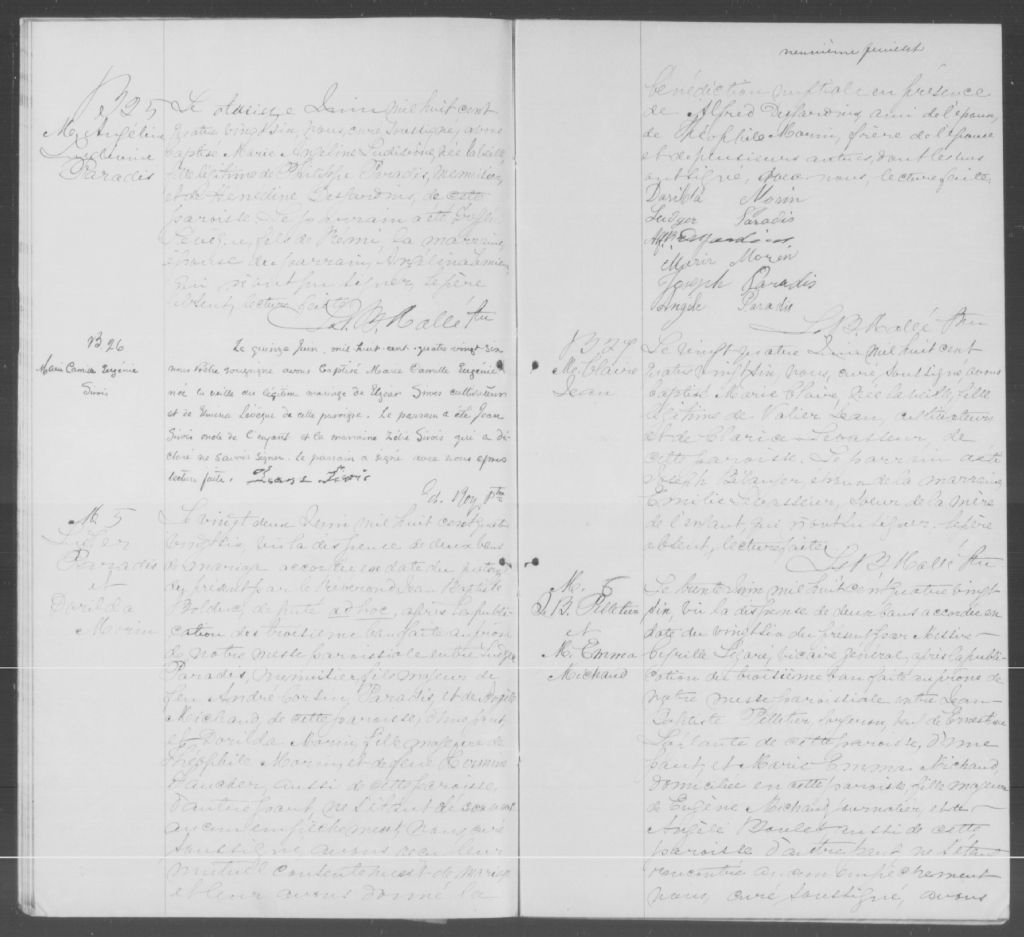 B 25
M. Angéline
Ludivine
Paradis
Le treize Juin mil huit cent
quatre vingt six, nous, curé soussigné, avons
baptisé Marie Angéline Ludivine, née la veille
fille légitime de Philippe Paradis, menuisier,
et de Henedine Desjardins, de cette
paroisse. Le parrain a été
Levesque, fils de Rémi, la marraine
épouse du parrain, Angelina
qui n'ont su signer, le père
absent, lecture faite.
Ls. B. Hallé Ptre
B 26
Marie Camille Eugénie
Sirois
Le quinze Juin, mil huit cent quatre vingt six
nous Prêtre soussigné avons baptisé Marie Camille Eugénie
née la veille du légitime mariage de Elzear Sirois cultivateur
et de Lévêque de cette paroisse. Le parrain a été Jean
Sirois oncle de l'enfant et la marraine Zélie Sirois qui a dé-
claré ne savoir signer. Le parrain a signé avec nous après
lecture faite. Jean Sirois
Ed. Roy, Ptre
M. 5
Ludger
Paradis
et
Dorilda
Morin
Le vingt deux Juin mil huit cent quatre
vingt six, vu la dispense de deux bans
de mariage accordée en date du
du présent par le Révérend Jean Baptiste
Bolduc, député ad hoc, après la publi-
cation du troisième ban faite au prône
de notre messe paroissiale entre Ludger
Paradis, menuisier, fils majeur de
feu André Corsin Paradis et de Angèle
Michaud de cette paroisse, d'une part
et Dorilda Morin, fille majeure de
Théophile Morin, et de feue Hermine
aussi de cette paroisse,
d'autre part, ne s'étant découvert
aucun empêchement, nous, curé
soussigné, avons reçu leur
mutuel consentement de mariage
et leur avons donné la
neuvième feuillet
bénédiction nuptiale en présence
de Alfred Desjardins, ami de l'époux,
de Théophile Morin, frère de l'épouse
et de plusieurs autres, dont les uns
ont signé, avec nous, lecture faite.
Dorilda Morin
Ludger Paradis
Alf. Desjardins
Marie Morin
Joseph Paradis
Angèle Paradis
Ls. B. Hallé Ptre
B 27
M. Claire
Jean
Le vingt quatre Juin mil huit cent
quatre vingt six, nous, curé, soussigné, avons
baptisé Marie Claire, née la veille, fille
légitime de Valier Jean, cultivateur
et de Clarice Levasseur, de
cette paroisse. Le parrain a été
Joseph Bélanger, époux de la marraine
Emilie Levasseur, soeur de la mère
de l'enfant, qui n'ont su signer. Le père
absent, lecture faite.
Ls. B. Hallé Ptre
M. 6
J. B. Pelletier
et
M. Emma
Michaud
Le trente Juin mil huit cent quatre vingt
six, vu la dispense de deux bans accordée en
date du vingt six du présent par Messire
Cyrille Légaré, vicaire général, après la publi-
cation du troisième ban faite au prône de
notre messe paroissiale entre Jean
Baptiste Pelletier, forgeron, veuf de Ernestine
Laplante de cette paroisse, d'une
part, et Marie Emma Michaud,
domiciliée en cette paroisse, fille majeure
de Eugène Michaud, journalier, et de
Angèle Boulet, aussi de cette
paroisse d'autre part, ne s'étant
rencontré aucun empêchement
nous, curé soussigné, avons